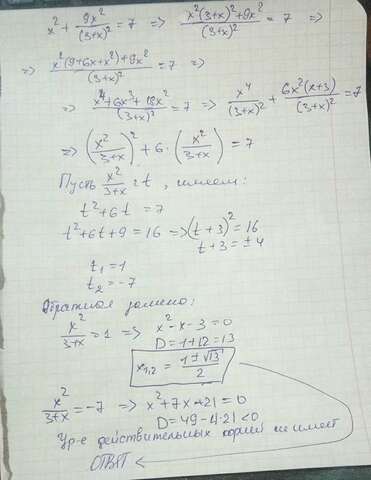 x² + 9x²/(3+x)² = 7 => (x²(3+x)²+9x²)/(3+x)² = 7 =>
=> (x²(9+6x+x²)+9x²)/(3+x)² = 7 =>
=> (x⁴+6x³+18x²)/(3+x)² = 7 => x⁴/(3+x)² + 6x²(x+3)/(3+x)² = 7
=> (x²/(3+x))² + 6·(x²/(3+x)) = 7
Пусть x²/(3+x) = t, имеем:
t²+6t = 7
t²+6t+9 = 16 => (t+3)² = 16
t+3 = ±4
t₁ = 1
t₂ = -7
Обратная замена:
x²/(3+x) = 1 => x²-x-3 = 0
D = 1+12 = 13
x₁,₂ = (1±√13)/2
x²/(3+x) = -7 => x²+7x+21 = 0
D = 49-4·21 < 0
Ур-е действительных корней не имеет
ОТВЕТ